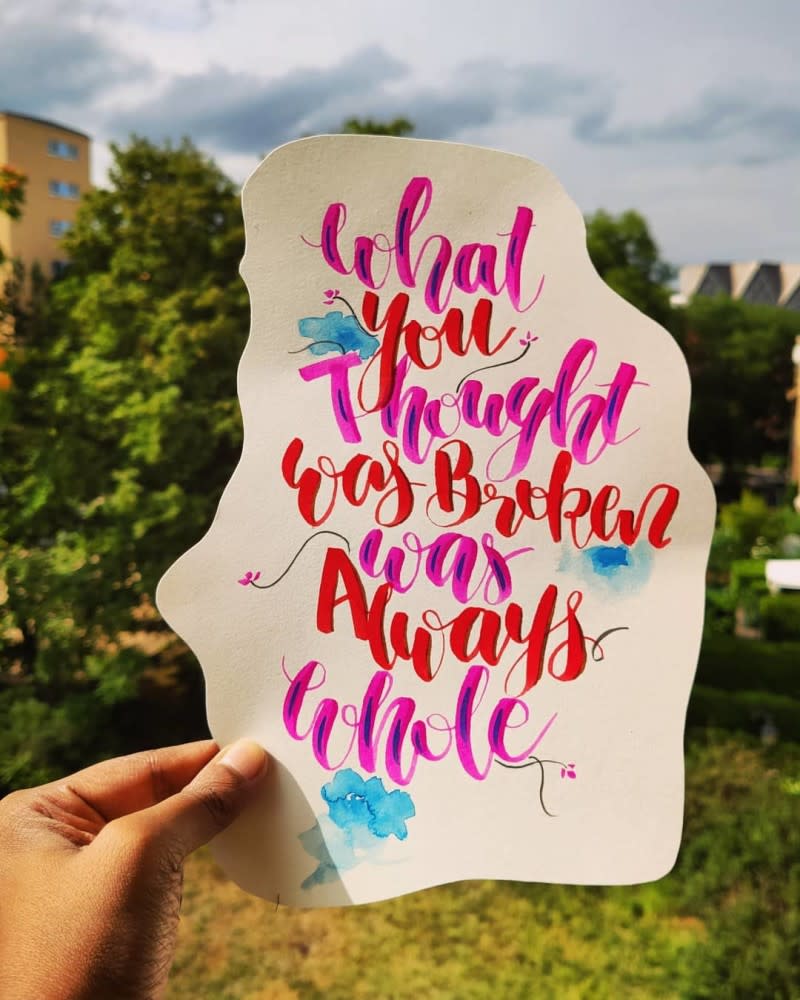 What
You
Thought
was Broken
was
Always
Whole